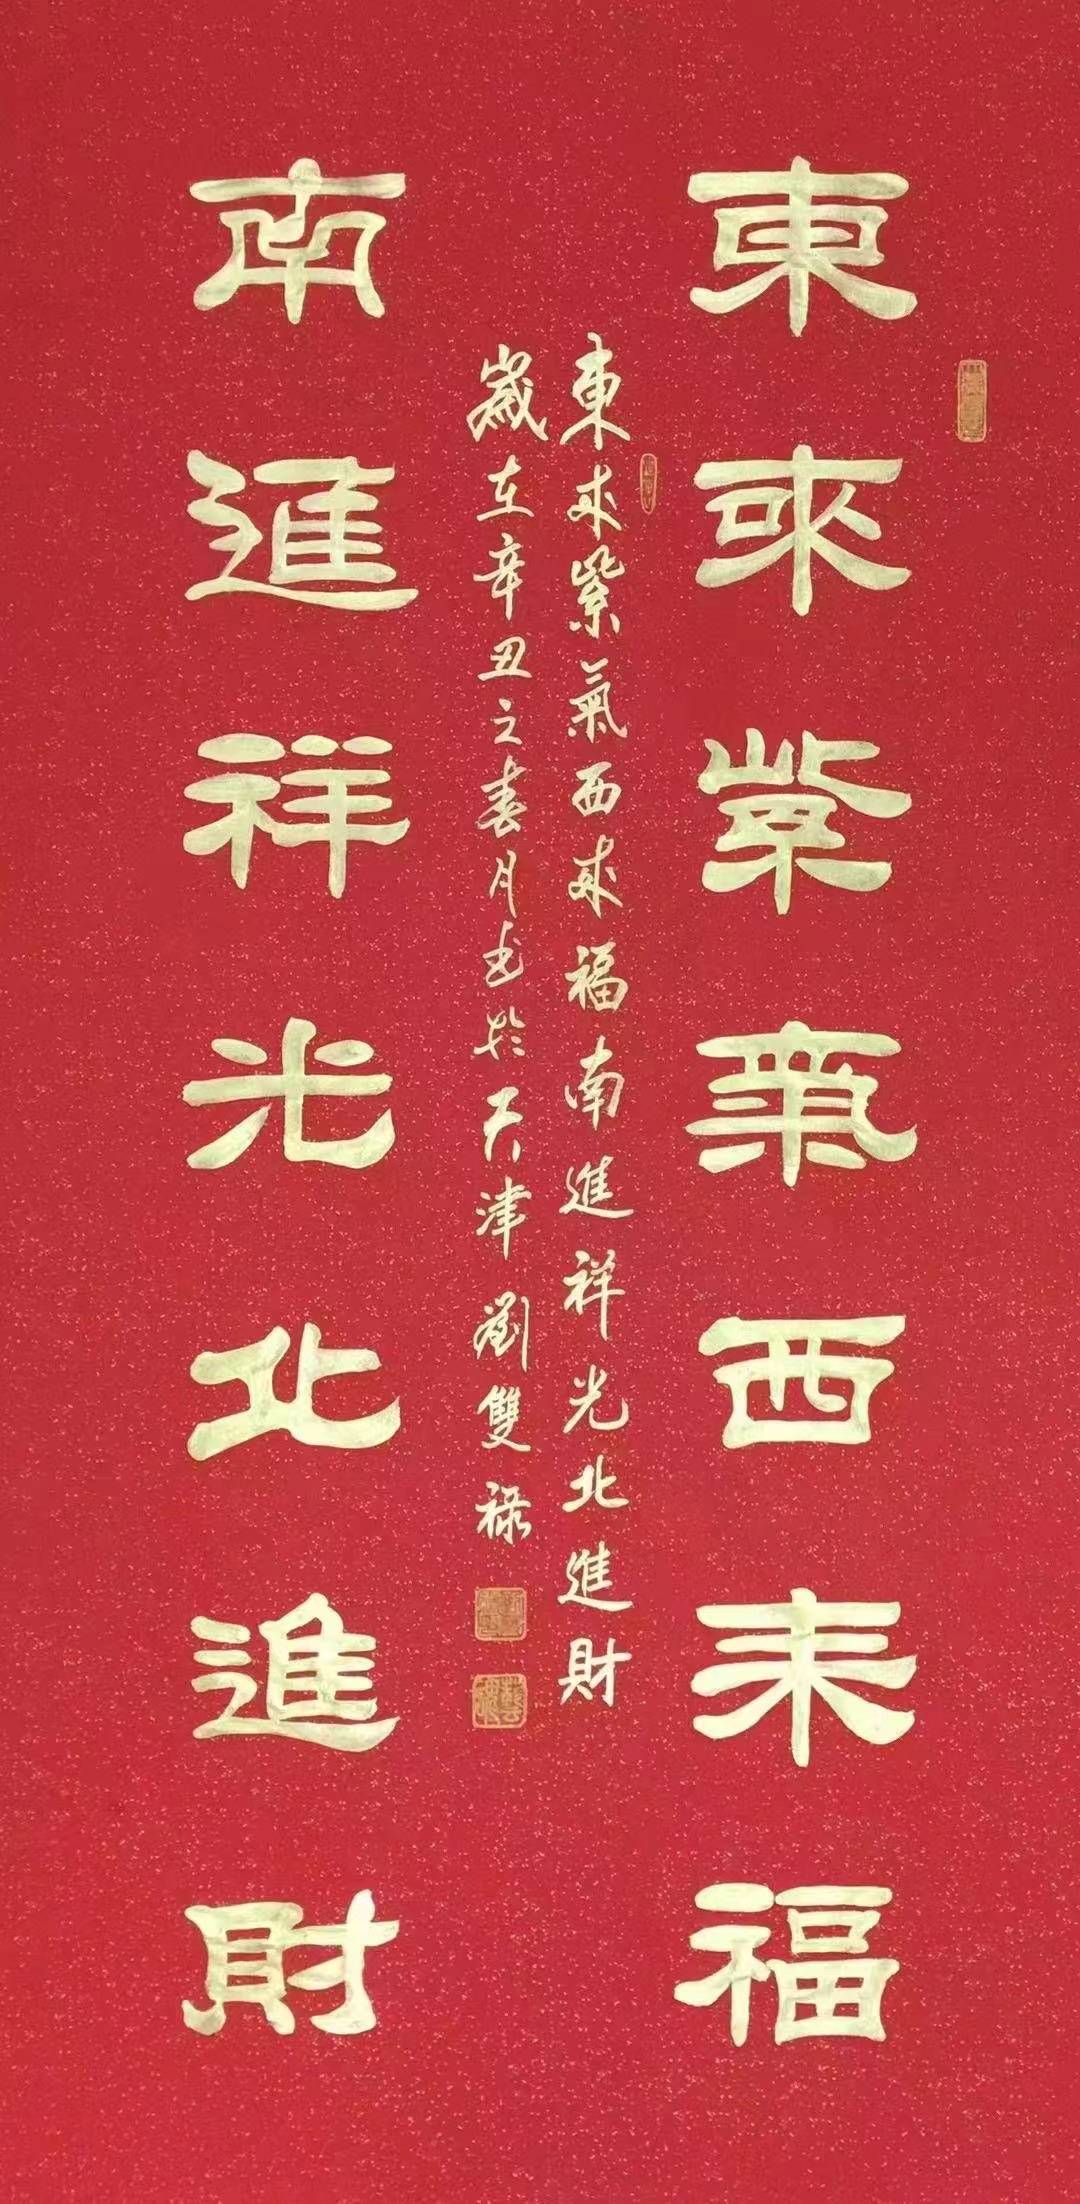 東來紫氣西来福
東來紫氣西來福南進祥光北進財
歲在辛丑之春月书於天津劉雙祿
南進祥光北進財